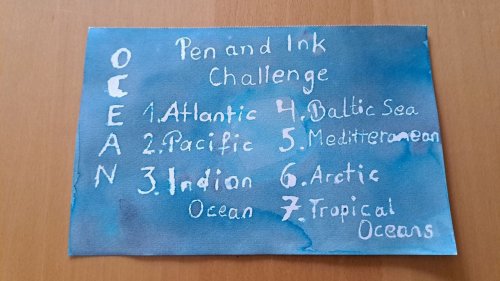 OCEAN
Pen and Ink
Challenge
1. Atlantic
2. Pacific
3. Indion
Ocean
4. Baltic Sea
5. Meditteranean
6. Arctic
7. Tropical
Oceans